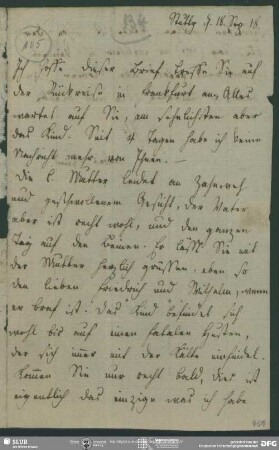 Stuttg. d. 18. Sep. 18
Ich hoffe dieser Brief treffe Sie auf
der Rückreise in Frankfurt an. Alles
wartet auf Sie, am sehnlichsten aber
das Kind. Seit 4 Tagen habe ich keine
Nachricht mehr von Ihnen. —
Die l. Mutter leidet an Zahnweh
und geschwollenem Gesicht, der Vater
aber ist recht wohl, und den ganzen
Tag auf den Beinen. Er läßt Sie mit
der Mutter herzlich grüssen. eben so
den lieben Friedrich und Wilhelm, wenn
er brav ist. Das Kind befindet sich
wohl bis auf einen fatalen Husten,
der sich immer mit der Kälte einfindet.
Kommen Sie nur recht bald, dies ist
eigentlich das einzige was ich habe
SLUB
DFG